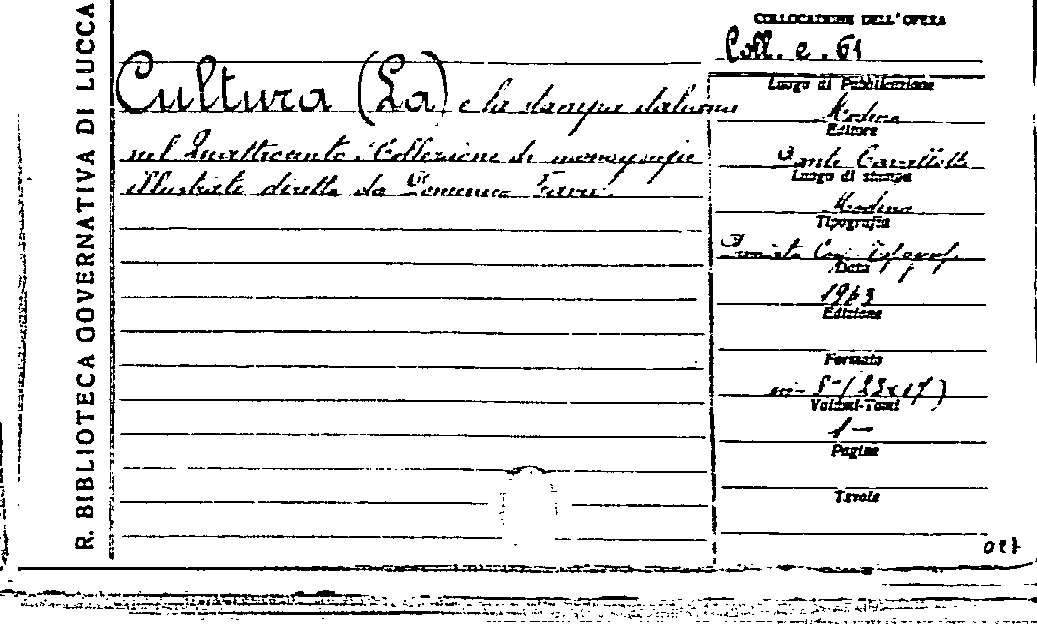 R. BIBLIOTECA GOVERNATIVA DI LUCCA
Cultura (La) e la stampa italiana
nel Quattrocento. Collezione di monografie
illustrate diretta da Domenico Fava.
COLLOCAZIONE DELL'OPERA
Coll. e. 61
Luogo di Pubblicazione
Modena
Editore
Luogo di stampa
Modena
Tipografia
Data
Edizione
Formato
in-8° (23x17)
Volumi-Tomi
1 —
Pagine
Tavole